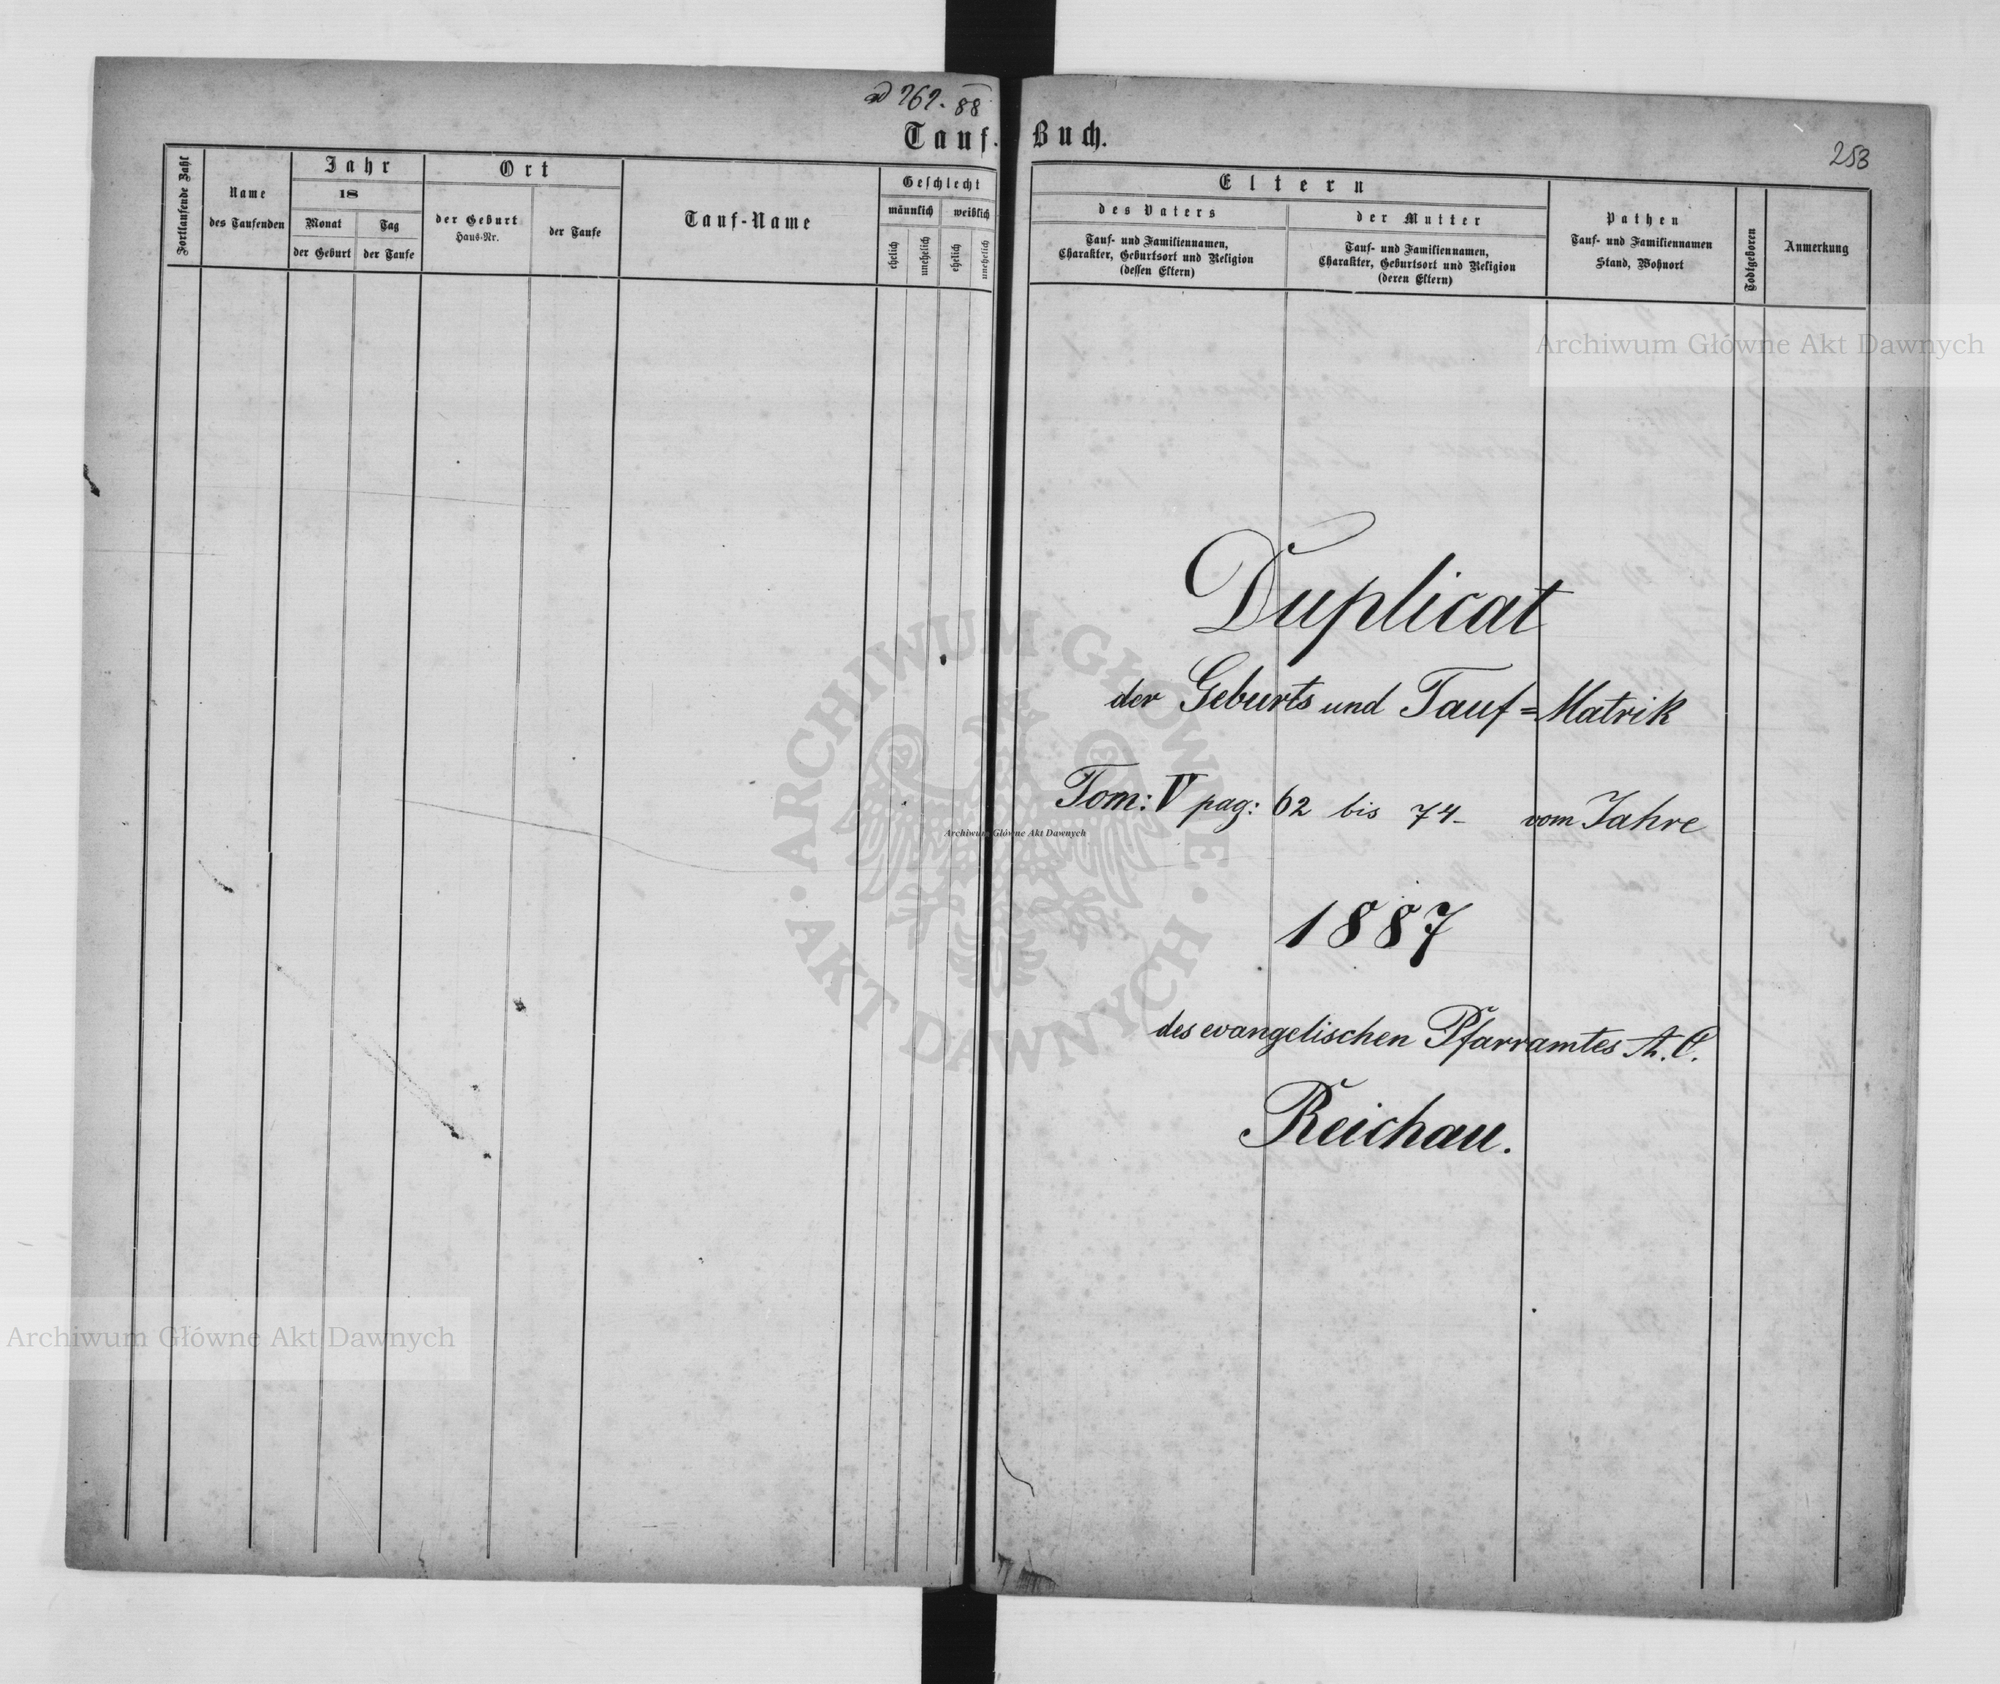 ad 262. 88
Tauf-Buch.
253
Fortlaufende Zahl
Name
des Taufenden
Jahr
18
Monat
Tag
der Geburt
der Taufe
Ort
der Geburt
Haus-Nr.
der Taufe
Tauf-Name
Geschlecht
männlich
weiblich
ehelich
unehelich
ehelich
unehelich
Eltern
des Vaters
Tauf- und Familiennamen,
Charakter, Geburtsort und Religion
(dessen Eltern)
der Mutter
Tauf- und Familiennamen,
Charakter, Geburtsort und Religion
(deren Eltern)
Pathen
Tauf- und Familiennamen
Stand, Wohnort
Todtgeboren
Anmerkung
Duplicat
der Geburts und Tauf=Matrik
Tom: V pag: 62 bis 74 vom Jahre
1887
des evangelischen Pfarramtes A. C.
Reichau.
Archiwum Główne Akt Dawnych
Archiwum Główne Akt Dawnych
Archiwum Główne Akt Dawnych
ARCHIWUM GŁÓWNE · AKT DAWNYCH ·